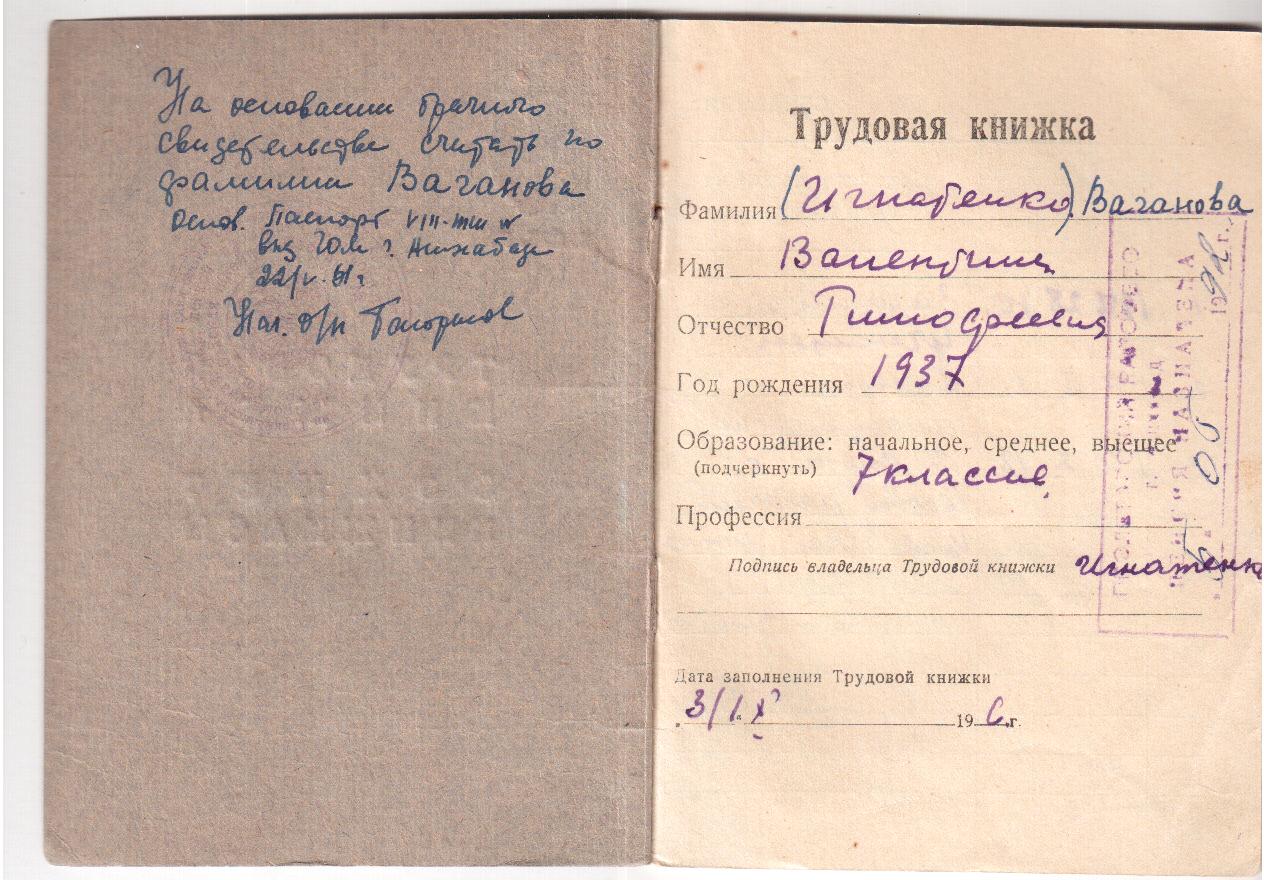 На основании брачного
свидетельства считать по
фамилии Ваганова
основ. Паспорт VIII-ТЮ №
выд. ГОМ г. Ашхабад
22/V-61г
Нач. о/к
Трудовая книжка
Фамилия (Игнатенко) Ваганова
Имя Валентина
Отчество Тимофеевна
Год рождения 1937
Образование: начальное, среднее, высшее
(подчеркнуть) 7 классов
Профессия
Подпись владельца Трудовой книжки Игнатенко
Дата заполнения Трудовой книжки
„3/IX" 196 г.
ПЕНСИЯ НАЗНАЧЕНА
1992 г.